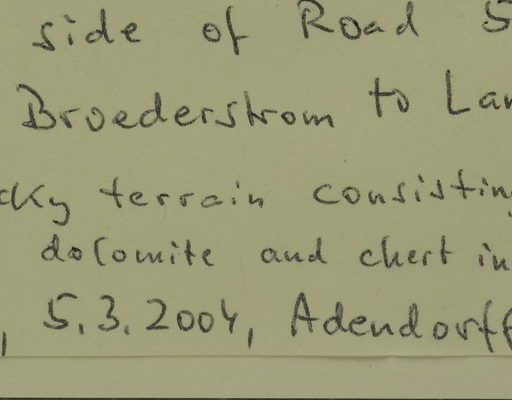 side of Road 5
Broederstrom to Lan
cky terrain consisting
dolomite and chert in
, 5.3.2004, Adendorff